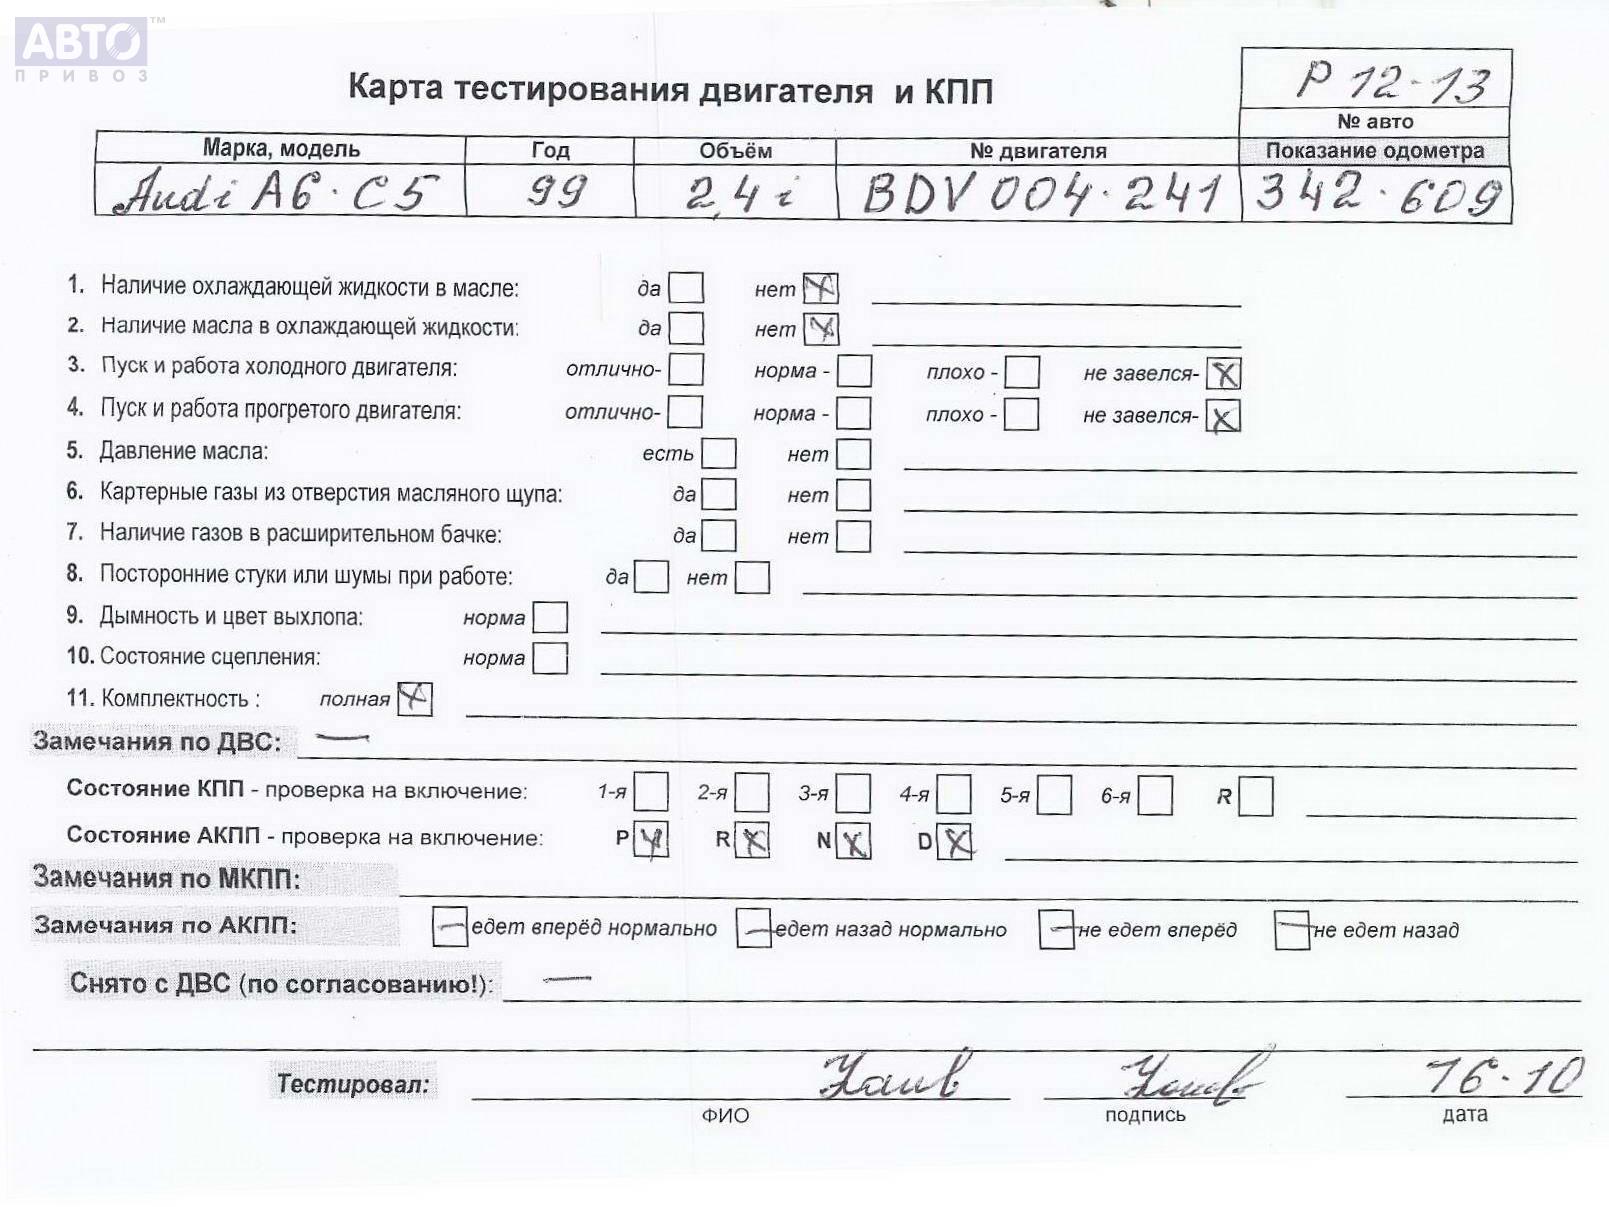 АВТО™
ПРИВОЗ
Р 12-13
Карта тестирования двигателя и КПП
№ авто
Марка, модель Год Объём № двигателя Показание одометра
Audi A6 · C5 99 2,4 i BDV 004 · 241 342 · 609
1. Наличие охлаждающей жидкости в масле: да нет
2. Наличие масла в охлаждающей жидкости: да нет
3. Пуск и работа холодного двигателя: отлично- норма - плохо - не завелся-
4. Пуск и работа прогретого двигателя: отлично- норма - плохо - не завелся-
5. Давление масла: есть нет
6. Картерные газы из отверстия масляного щупа: да нет
7. Наличие газов в расширительном бачке: да нет
8. Посторонние стуки или шумы при работе: да нет
9. Дымность и цвет выхлопа: норма
10. Состояние сцепления: норма
11. Комплектность : полная
Замечания по ДВС: —
Состояние КПП - проверка на включение: 1-я 2-я 3-я 4-я 5-я 6-я R
Состояние АКПП - проверка на включение: P R N D
Замечания по МКПП:
Замечания по АКПП: едет вперёд нормально едет назад нормально не едет вперёд не едет назад
Снято с ДВС (по согласованию!): —
Тестировал: 16-10
ФИО подпись дата